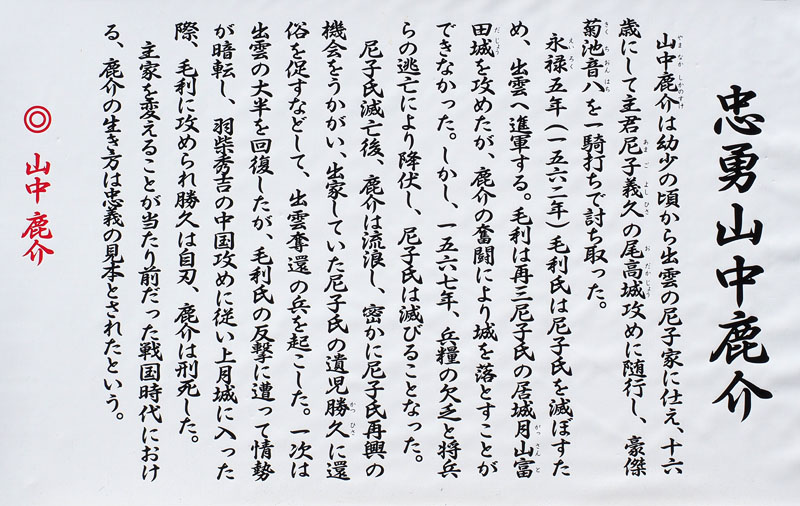 忠勇山中鹿介
山中鹿介は幼少の頃から出雲の尼子家に仕え、十六
歳にして主君尼子義久の尾高城攻めに随行し、豪傑
菊池音八を一騎打ちで討ち取った。
永禄五年(一五六二年)毛利氏は尼子氏を滅ぼすた
め、出雲へ進軍する。毛利は再三尼子氏の居城月山富
田城を攻めたが、鹿介の奮闘により城を落とすことが
できなかった。しかし、一五六七年、兵糧の欠乏と将兵
らの逃亡により降伏し、尼子氏は滅びることなった。
尼子氏滅亡後、鹿介は流浪し、密かに尼子氏再興の
機会をうかがい、出家していた尼子氏の遺児勝久に還
俗を促すなどして、出雲奪還の兵を起こした。一次は
出雲の大半を回復したが、毛利氏の反撃に遭って情勢
が暗転し、羽柴秀吉の中国攻めに従い上月城に入った
際、毛利に攻められ勝久は自刃、鹿介は刑死した。
主家を変えることが当たり前だった戦国時代におけ
る、鹿介の生き方は忠義の見本とされたという。
◎山中鹿介